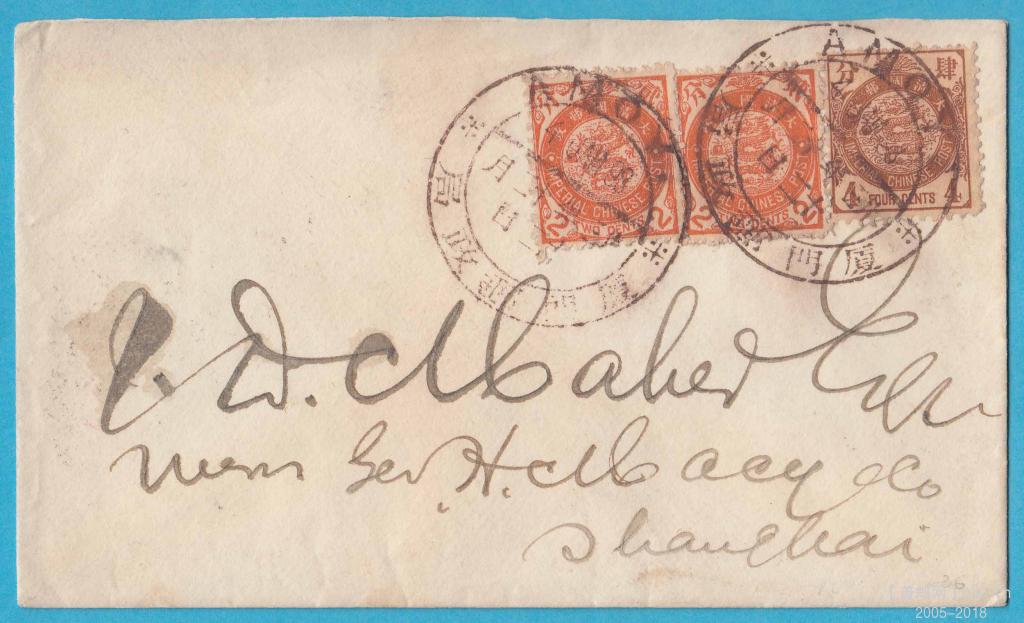 AMOY
AMOY
廈門郵政局
廈門郵政局
IMPERIAL CHINESE POST
2 TWO CENTS 2
IMPERIAL CHINESE POST
2 TWO CENTS 2
分 肆
IMPERIAL CHINESE POST
4 FOUR CENTS 4
J. D. Maher Esqr
Messrs Geo. H. Macy & Co
Shanghai
20
2005-2018